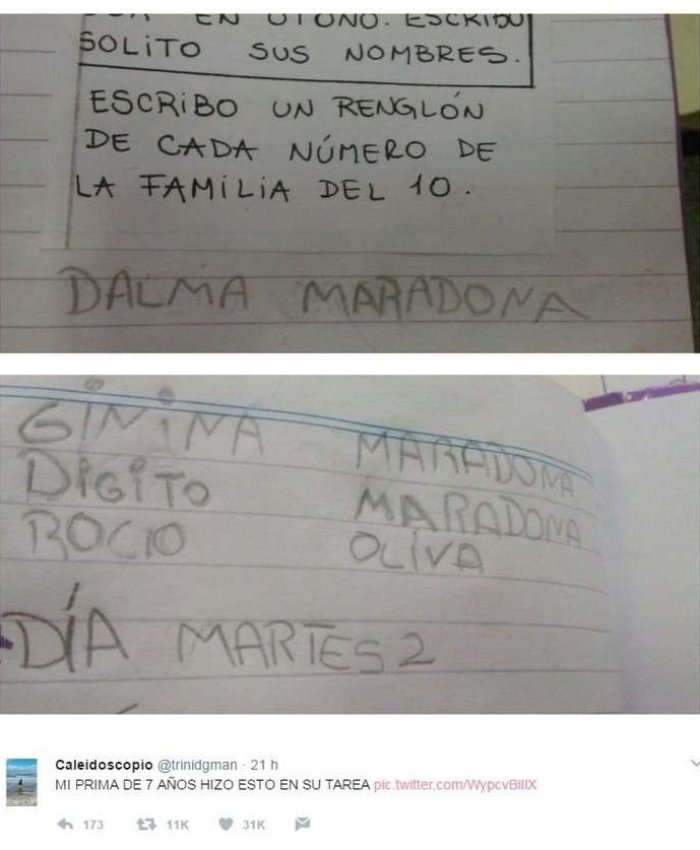 EN OTOÑO. ESCRIBO
SOLITO SUS NOMBRES.
ESCRIBO UN RENGLÓN
DE CADA NÚMERO DE
LA FAMILIA DEL 10.
DALMA MARADONA
GINiNA MARADONA
DiGiTO MARADONA
ROCIO OLIVA
DÍA MARTES 2
Caleidoscopio @trinidgman · 21 h
MI PRIMA DE 7 AÑOS HIZO ESTO EN SU TAREA pic.twitter.com/WypcvBillX
173 11K 31K